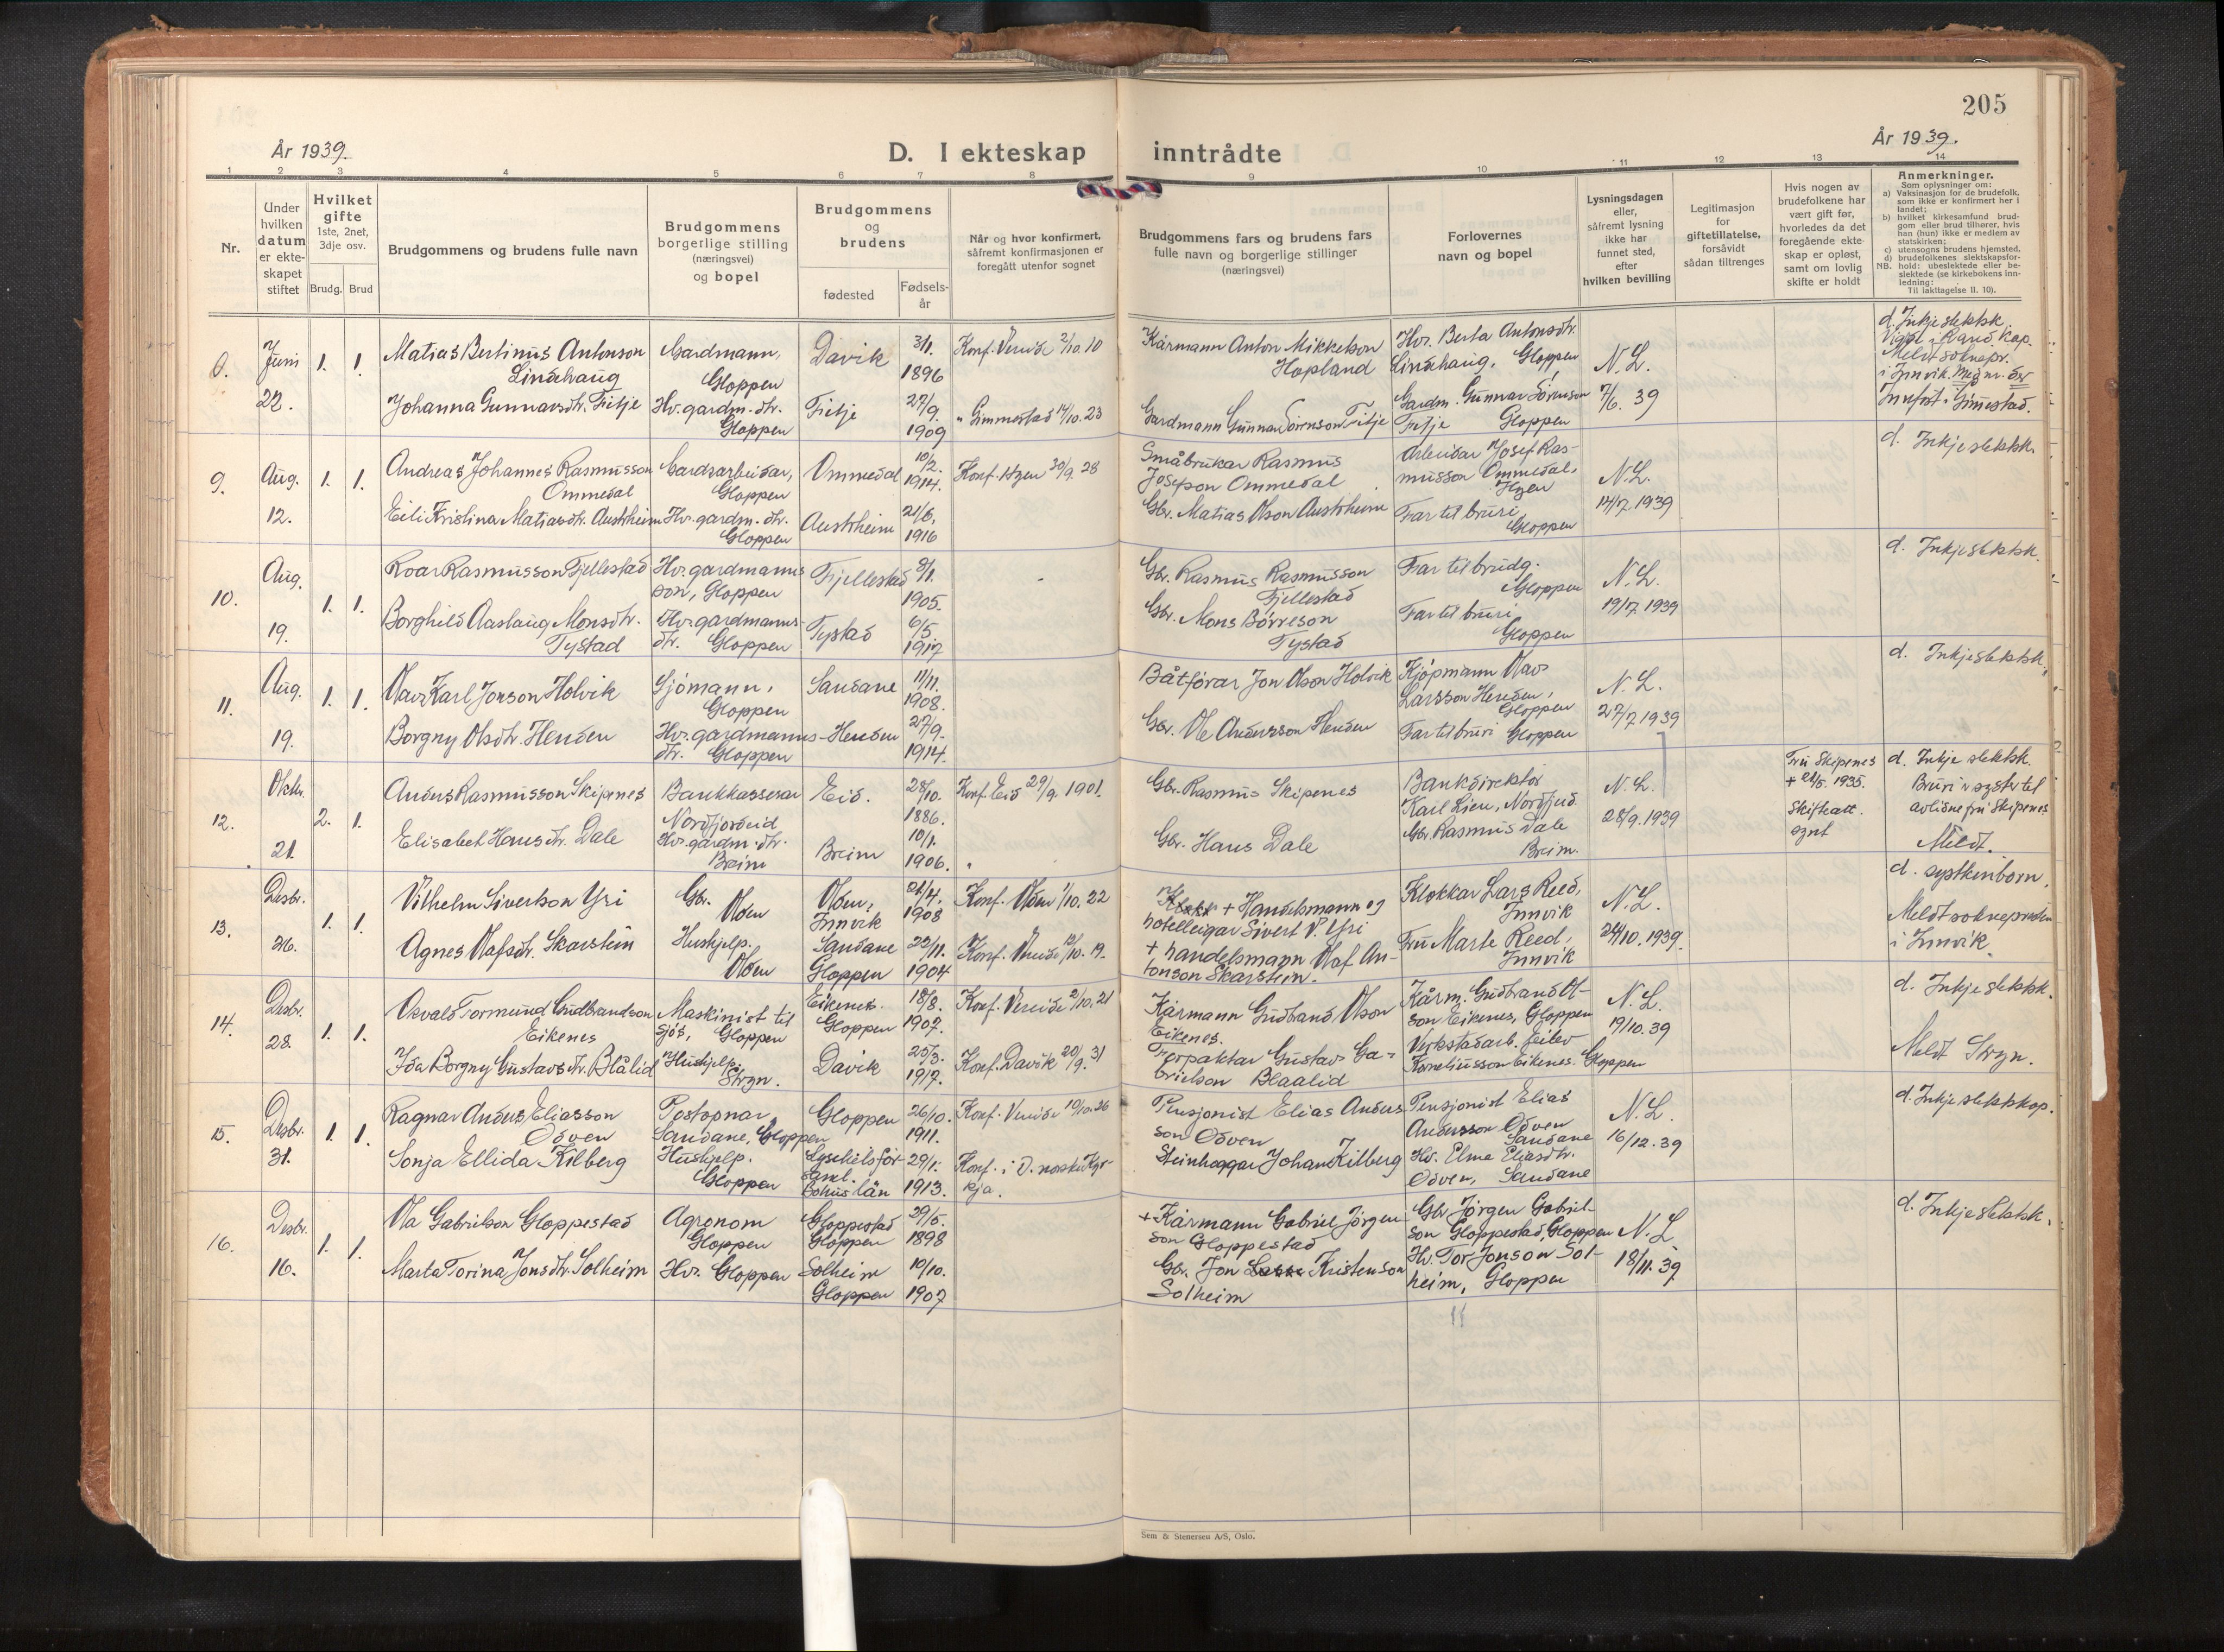 205
År 1939.
D. I ekteskap inntrådte
År 1939.
1 2 3 4 5 6 7 8 9 10 11 12 13 14
Nr.
Under hvilken datum er ekteskapet stiftet
Hvilket gifte 1ste, 2net, 3dje osv.
Brudg. Brud
Brudgommens og brudens fulle navn
Brudgommens borgerlige stilling (næringsvei) og bopel
Brudgommens og brudens
fødested
Fødselsår
Når og hvor konfirmert, såfremt konfirmasjonen er foregått utenfor sognet
Brudgommens fars og brudens fars fulle navn og borgerlige stillinger (næringsvei)
Forlovernes navn og bopel
Lysningsdagen eller, såfremt lysning ikke har funnet sted, efter hvilken bevilling
Legitimasjon for giftetillatelse, forsåvidt sådan tiltrenges
Hvis nogen av brudefolkene har vært gift før, hvorledes da det foregående ekteskap er opløst, samt om lovlig skifte er holdt
Anmerkninger.
Som oplysninger om:
a) Vaksinasjon for de brudefolk, som ikke er konfirmert her i landet;
b) hvilket kirkesamfund brudgom eller brud tilhører, hvis han (hun) ikke er medlem av statskirken;
c) utensogns brudens hjemsted,
d) brudefolkenes slektskapsforhold: ubeslektede eller beslektede (se kirkebokens innledning:
NB. Til iakttagelse II. 10).
8. Juni 22. 1. 1.
Matias Bertinus Antonson Lindhaug
Gardmann, Gloppen
Davik 3/1. 1896
Konf. Vereide 2/10.10
Kårmann Anton Mikkelson Hopland
Hvr. Berta Antonsdtr. Lindhaug, Gloppen
N.L. 7/6. 39
Johanna Gunnarsdtr. Fitje
Hv. gardm. dtr. Gloppen
Fitje 27/9. 1909
" Gimmestad 14/10.23
Gardmann Gunnar Sørenson Fitje
Gardm. Gunnar Sørenson Fitje Gloppen
d. Inkje slektsk.
Meldt soknepr.
i Innvik.
Innført i Gimmestad.
9. Aug. 12. 1. 1.
Andreas Johannes Rasmusson Ommedal
Gardsarbeidar, Gloppen
Ommedal 10/2. 1914.
Konf. Hyen 30/9. 28
Småbrukar Rasmus Josefson Ommedal
Arbeidar Josef Rasmusson Ommedal, Hyen
N.L. 14/7 1939
Eili Kristina Matiasdtr. Austrheim
Hv. gardm. dtr. Gloppen
Austrheim 21/6. 1916
Gbr. Matias Olson Austrheim
Far til bruri Gloppen
d. Inkje slektsk.
10. Aug. 19. 1. 1.
Roar Rasmusson Fjellestad
Hv. gardmanns son, Gloppen
Fjellestad 8/1. 1905.
Gbr. Rasmus Rasmusson Fjellestad
Far til brudg. Gloppen
N.L. 19/7. 1939
Borghild Aaslaug Monsdtr. Tystad
Hv. gardmanns dtr. Gloppen
Tystad 6/5. 1917
Gbr. Mons Børreson Tystad
Far til bruri Gloppen
d. Inkje slektsk.
11. Aug. 19. 1. 1.
Olav Karl Jonson Holvik
Sjömann, Gloppen
Sandane 11/11. 1908.
Båtförar Jon Olson Holvik
Kjöpmann Olav Larsson Henden, Gloppen
N.L. 27/7 1939
Borgny Olsdtr. Henden
Hv. gardmanns dtr. Gloppen
Henden 27/9. 1914.
Gbr. Ole Andersson Henden
Far til bruri Gloppen
d. Inkje slektsk.
12. Oktbr. 21. 2. 1.
Anders Rasmusson Skipenes
Bankkasserar Nordfjordeid
Eid. 28/10. 1886.
Konf. Eid 29/9. 1901.
Gbr. Rasmus Skipenes
Bankdirektør Karl Lien, Nordfjord
N.L. 28/9. 1939
Elisabet Hansdtr. Dale
Hv. gardm. dtr. Breim
Breim 10/1. 1906.
Gbr. Hans Dale
Gbr. Rasmus Dale Breim.
Fru Skipenes + 21/5. 1935. Skifteatt. synt
d. Inkje slektsk. Bruri er syster til avlidne fru Skipenes
Meldt.
13. Desbr. 26. 1. 1.
Vilhelm Siverson Yri
Gbr. Olden
Olden, Innvik 21/4. 1908
Konf. Olden 1/10. 22
+ Handelsmann og hotelleigar Sivert V. Yri
Klokkar Lars Reed, Innvik
N.L. 24/10. 1939.
Agnes Olafsdtr. Skarstein
Hushjelp. Olden
Sandane Gloppen 22/11. 1904
Konf. Vereide 12/10. 19.
+ handelsmann Olaf Antonson Skarstein.
Fru Marte Reed, Innvik
d. systkinborn.
Meldt soknepresten i Innvik.
14. Desbr. 28. 1. 1.
Osvald Tormund Gudbrandson Eikenes
Maskinist til sjös, Gloppen
Eikenes. Gloppen 18/8. 1907.
Konf. Vereide 2/10. 21
Kårmann Gudbrand Olson Eikenes.
Kårm. Gudbrand Olson Eikenes, Gloppen
N.L. 19/10. 39
Ida Borgny Gustavsdtr. Blålid
Hushjelp. Stryn.
Davik 25/3. 1917.
Konf. Davik 20/9. 31
Forpaktar Gustav Gabrielson Blaalid
Verkstadarb. Eilev Korneliusson Eikenes. Gloppen
d. Inkje slektsk.
Meldt Stryn.
15. Desbr. 31. 1. 1.
Ragnar Anders Eliasson Odven
Postopnar, Sandane, Gloppen
Gloppen 26/10. 1911.
Konf. Vereide 10/10. 26
Pensjonist Elias Andersson Odven
Pensjonist Elias Andersson Odven Sandane
N.L. 16/12. 39
Sonja Ellida Kilberg
Hushjelp. Gloppen
Lysekilsförsaml. Bohus län 29/1. 1913.
Konf. i D. norske Kyrkja.
Steinhoggar Johan Kilberg
Hv. Elma Eliasdtr. Odven, Sandane
d. Inkje slektskap.
16. Desbr. 16. 1. 1.
Ola Gabrielson Gloppestad
Agronom Gloppen
Gloppestad Gloppen 29/5. 1898
+ Kårmann Gabriel Jørgenson Gloppestad
Gbr Jörgen Gabrielson Gloppestad, Gloppen
N.L. 18/11. 39
Marta Torina Jonsdtr. Solheim
Hv. Gloppen
Solheim Gloppen 10/10. 1907
Gbr. Jon Kristenson Solheim
Hv. Tor Jonson Solheim, Gloppen
d. Inkje slektsk.
Sem & Stenersen A/S, Oslo.